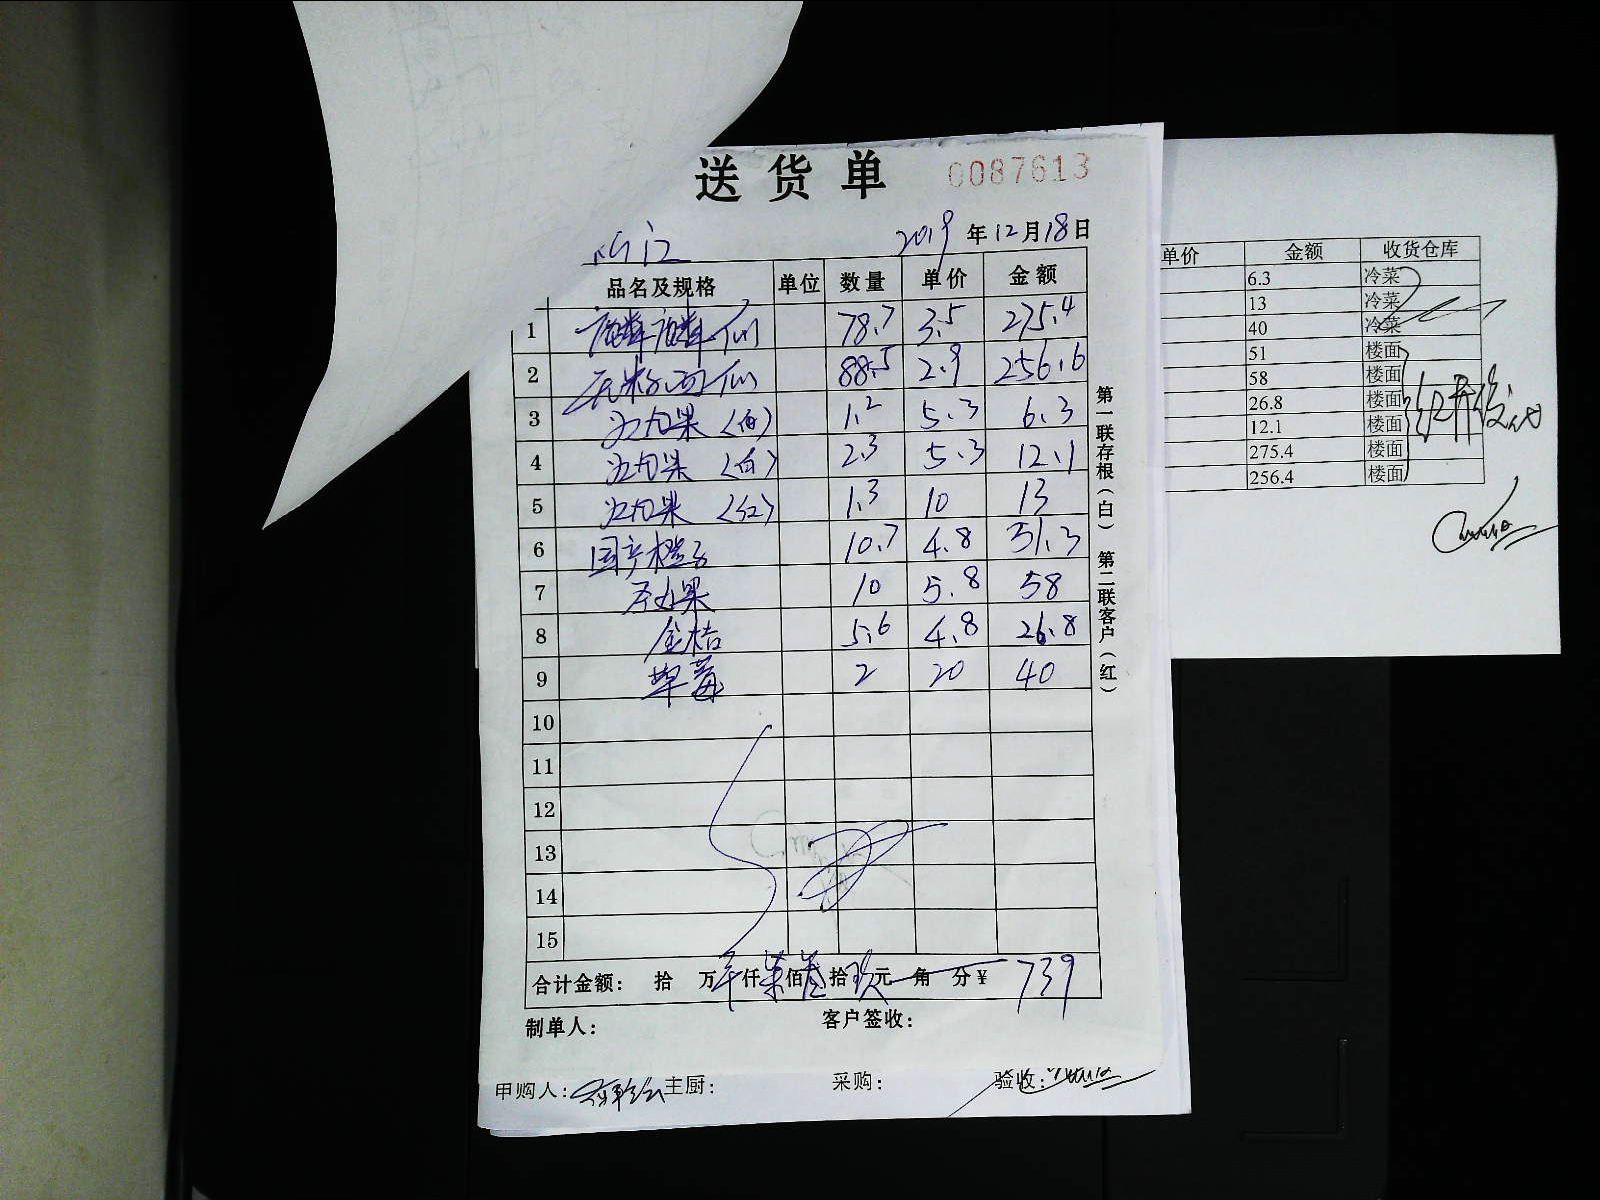 送货单 0087613
2019年12月18日
品名及规格 单位 数量 单价 金额
1 麒麟瓜 78.7 3.5 275.4
2 88.5 2.9 256.6
3 火龙果(白) 1.2 5.3 6.3
4 火龙果(白) 2.3 5.3 12.1
5 火龙果(红) 1.3 10 13
6 国产橙子 10.7 4.8 51.3
7 圣女果 10 5.8 58
8 金桔 5.6 4.8 26.8
9 草莓 2 20 40
10
11
12
13
14
15
合计金额: 拾 万 仟柒佰叁拾玖元 角 分¥ 739
制单人: 客户签收:
第一联存根(白) 第二联客户(红)
申购人: 主厨: 采购: 验收:
单价 金额 收货仓库
6.3 冷菜
13 冷菜
40 冷菜
51 楼面
58 楼面
26.8 楼面
12.1 楼面
275.4 楼面
256.4 楼面